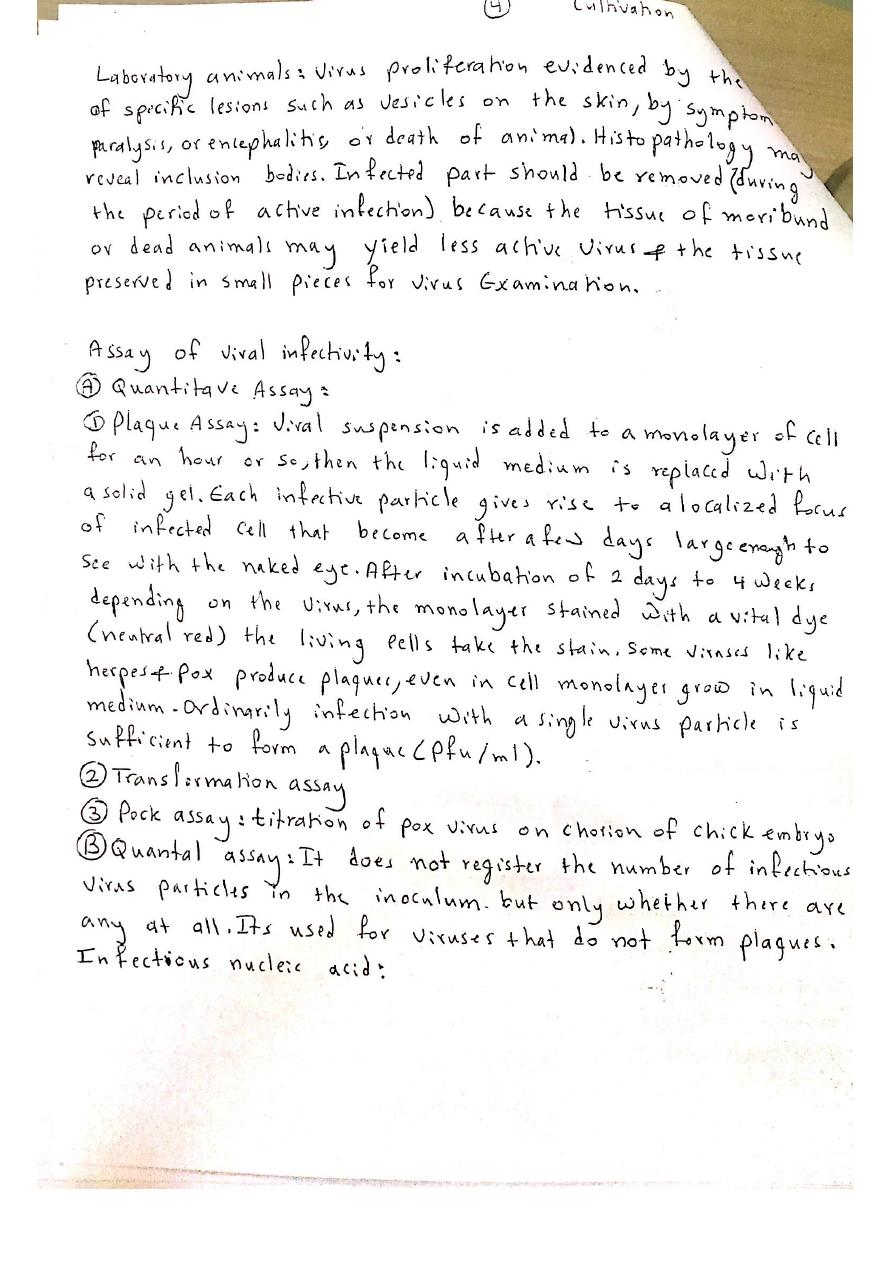 4 Cultivation
Laboratory animals: Virus proliferation evidenced by the
of specific lesions such as vesicles on the skin, by symptom
paralysis, or encephalitis or death of animal. Histopathology may
reveal inclusion bodies. Infected part should be removed (during
the period of active infection) because the tissue of moribund
or dead animals may yield less active virus & the tissue
preserved in small pieces for virus Examination.
Assay of viral infectivity:
(A) Quantitave Assay:
① Plaque Assay: Viral suspension is added to a monolayer of cell
for an hour or so, then the liquid medium is replaced with
a solid gel. Each infective particle gives rise to a localized focus
of infected cell that become after a few days large enough to
see with the naked eye. After incubation of 2 days to 4 weeks
depending on the virus, the monolayer stained with a vital dye
(neutral red) the living cells take the stain. Some viruses like
herpes & Pox produce plaques, even in cell monolayer grow in liquid
medium. Ordinarily infection with a single virus particle is
sufficient to form a plaque (Pfu/ml).
② Transformation assay
③ Pock assay: titration of pox virus on chorion of chick embryo
(B) Quantal assay: It does not register the number of infectious
virus particles in the inoculum. but only whether there are
any at all. Its used for viruses that do not form plaques.
Infectious nucleic acid: